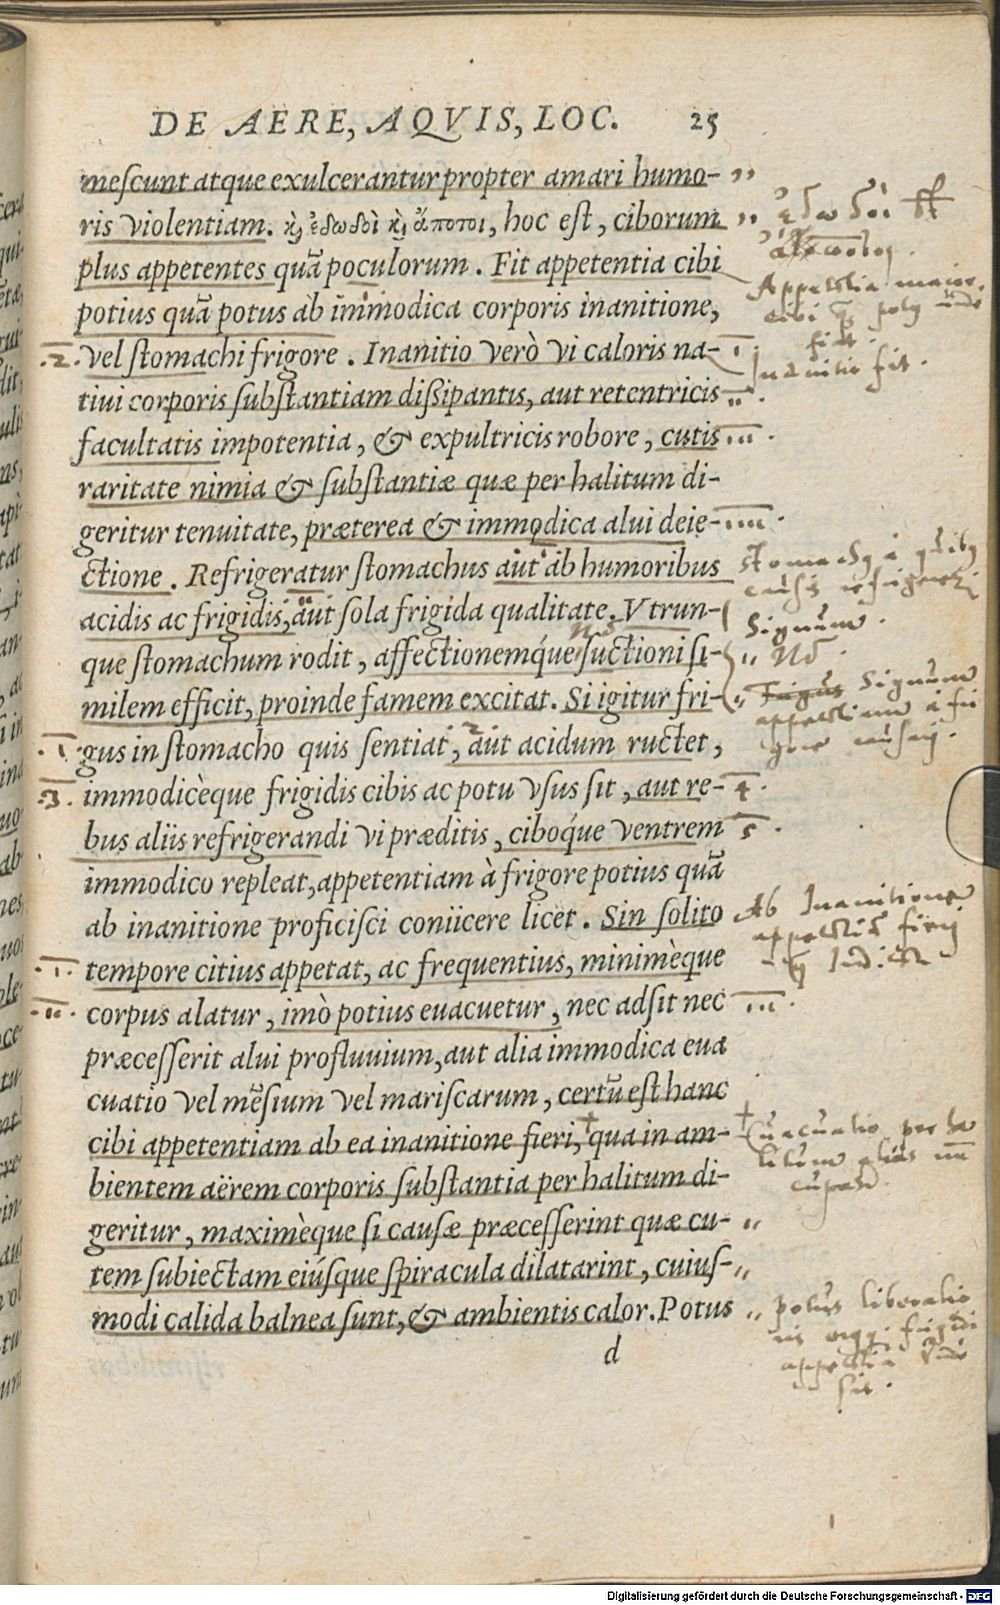 DE AERE, AQVIS, LOC. 25
meſcunt atque exulcerantur propter amari humo-
ris violentiam. κỳ ἐδωδοὶ κỳ ἄποτοι, hoc eſt, ciborum
plus appetentes quā poculorum. Fit appetentia cibi
potius quā potus ab immodica corporis inanitione,
.2. vel ſtomachi frigore. Inanitio verò vi caloris na-
tiui corporis ſubſtantiam diſsipantis, aut retentricis
facultatis impotentia, & expultricis robore, cutis
raritate nimia & ſubſtantiæ quæ per halitum di-
geritur tenuitate, præterea & immodica alui deie-
ctione. Refrigeratur ſtomachus aut ab humoribus
acidis ac frigidis, aut ſola frigida qualitate. Vtrun-
que ſtomachum rodit, affectionemq́ue ſuctioni ſi-
milem efficit, proinde famem excitat. Si igitur fri-
.1. gus in ſtomacho quis ſentiat, aut acidum ructet,
.3. immodicèque frigidis cibis ac potu vſus ſit, aut re- 4.
bus aliis refrigerandi vi præditis, ciboq́ue ventrem 5.
immodico repleat, appetentiam à frigore potius quā
ab inanitione proficiſci coniicere licet. Sin ſolito
.1. tempore citius appetat, ac frequentius, minimèque
.ii. corpus alatur, imò potius euacuetur, nec adſit nec iii.
præceſſerit alui profluuium, aut alia immodica eua
cuatio vel mēſium vel mariſcarum, certū eſt hanc
cibi appetentiam ab ea inanitione fieri, qua in am-
bientem aërem corporis ſubſtantia per halitum di-
geritur, maximèque ſi cauſæ præceſſerint quæ cu-
tem ſubiectam eiúſque ſpiracula dilatarint, cuiuſ-
modi calida balnea ſunt, & ambientis calor. Potus
d
Appetētia maior
cibi
Inanitio fit.
Signum.
Signum
Ab Inanitione
Euacuatio per ha
litum
potus liberalio
appetētia
fit.
Digitalisierung gefördert durch die Deutsche Forschungsgemeinschaft - DFG